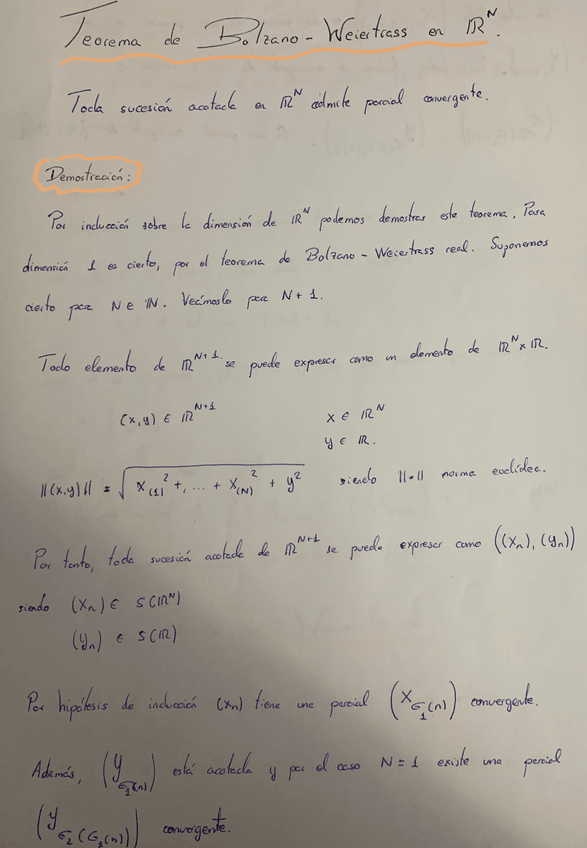 Teorema de Bolzano - Weiertrass en ℝ^N.
Toda sucesión acotada en ℝ^N admite parcial convergente.
Demostración:
Por inducción sobre la dimensión de ℝ^N podemos demostrar este teorema. Para
dimensión 1 es cierto, por el teorema de Bolzano - Weiertrass real. Suponemos
cierto para N ∈ ℕ. Veámoslo para N + 1.
Todo elemento de ℝ^{N+1} se puede expresar como un elemento de ℝ^N x ℝ.
(x,y) ∈ ℝ^{N+1} x ∈ ℝ^N
y ∈ ℝ.
||(x,y)|| = √(x_{(1)}^2 +, ... + x_{(N)}^2 + y^2) siendo ||·|| norma euclídea.
Por tanto, toda sucesión acotada de ℝ^{N+1} se puede expresar como ((x_n), (y_n))
siendo (x_n) ∈ S(ℝ^N)
(y_n) ∈ S(ℝ)
Por hipótesis de inducción (x_n) tiene una parcial (x_{σ_1(n)}) convergente.
Además, (y_{σ_1(n)}) está acotada y por el caso N = 1 existe una parcial
(y_{σ_2(σ_1(n))}) convergente.